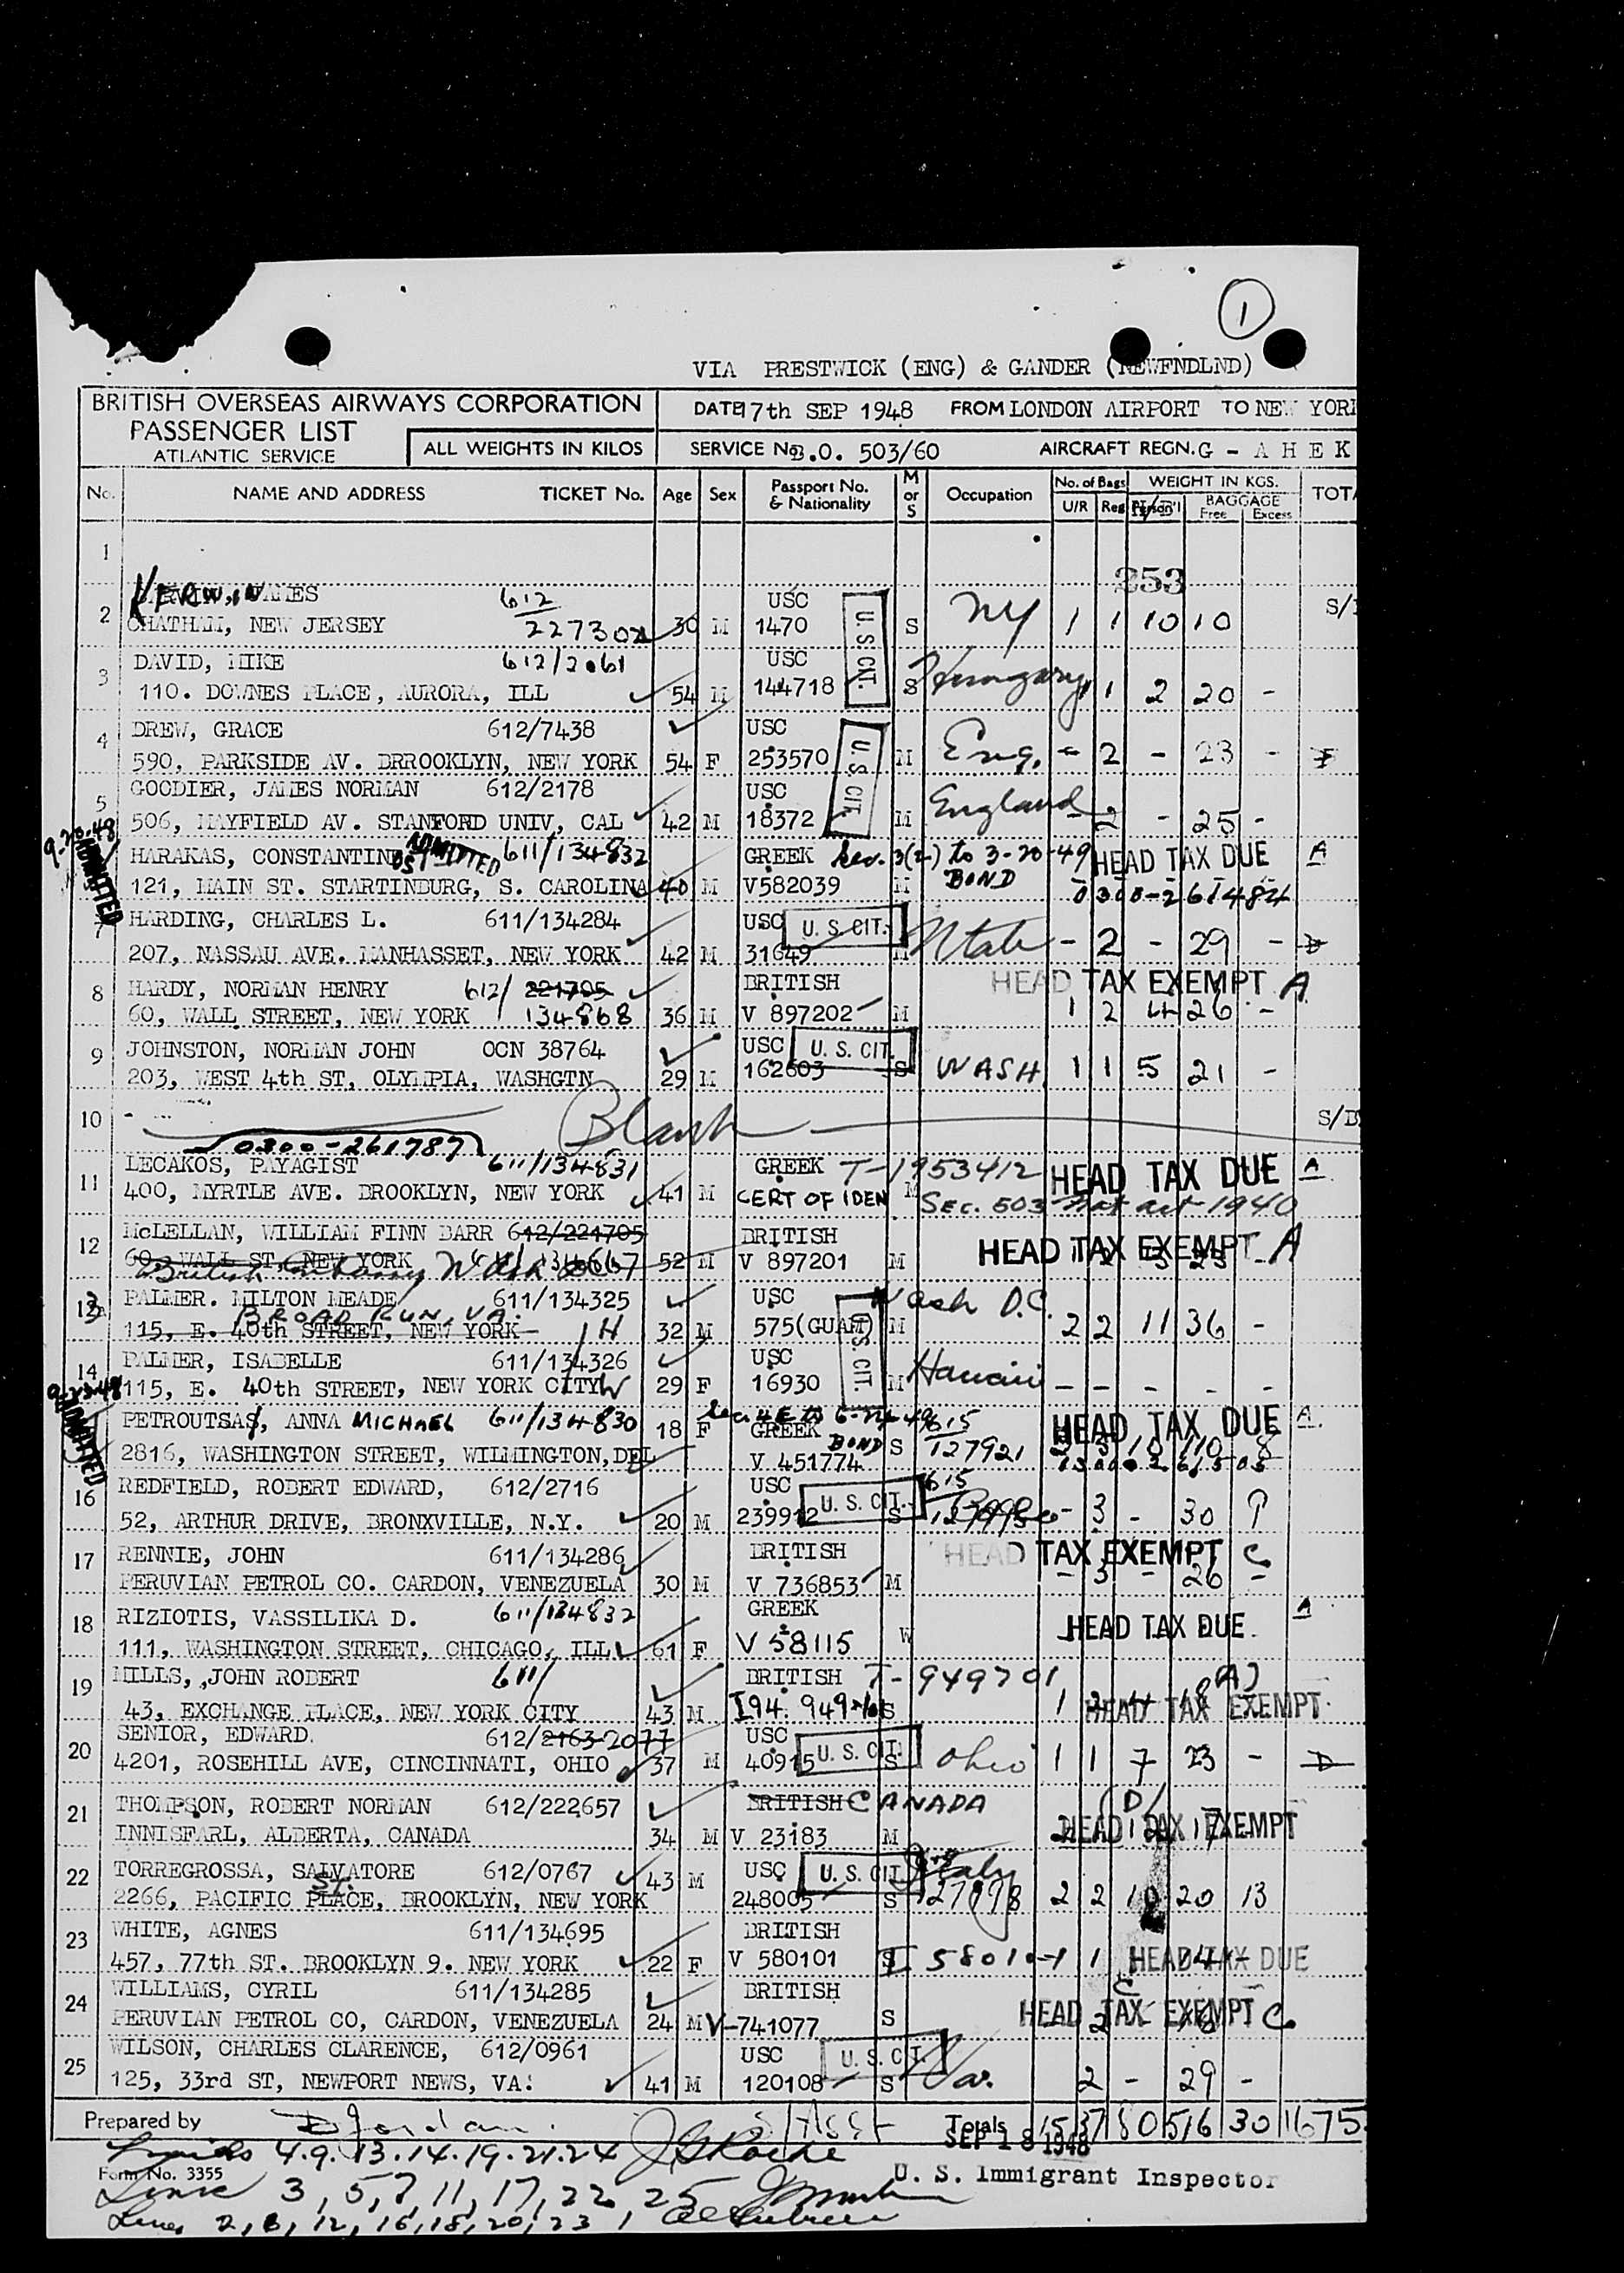 1
VIA PRESTWICK (ENG) & GANDER (NEWFNDLND)
BRITISH OVERSEAS AIRWAYS CORPORATION
PASSENGER LIST
ATLANTIC SERVICE
ALL WEIGHTS IN KILOS
DATE 17th SEP 1948 FROM LONDON AIRPORT TO NEW YORK
SERVICE No B.O. 503/60 AIRCRAFT REGN. G - A H E K
No. NAME AND ADDRESS TICKET No. Age Sex Passport No. & Nationality M or S Occupation No. of Bags U/R Reg WEIGHT IN KGS. Person'l BAGGAGE Free Excess TOTA
1
353
KERWIN, JAMES 612 USC
2 CHATHAM, NEW JERSEY 227302 30 M 1470 S NY 1 1 10 10 S/
U. S. CIT.
DAVID, MIKE 612/2061 USC
3 110. DOWNES PLACE, AURORA, ILL 54 M 144718 S Hungary 1 1 2 20 -
DREW, GRACE 612/7438 USC
4 590, PARKSIDE AV. BRROOKLYN, NEW YORK 54 F 253570 M Eng. - 2 - 23 -
U. S. CIT.
GOODIER, JAMES NORMAN 612/2178 USC
5 506, MAYFIELD AV. STANFORD UNIV, CAL 42 M 18372 M England - 2 - 25 -
9-20-48 ADMITTED
HARAKAS, CONSTANTINOS ADMITTED 611/134832 GREEK Sec. 3(2) to 3-20-49 HEAD TAX DUE A
121, MAIN ST. STARTINBURG, S. CAROLINA 40 M V582039 M BOND 0300-261484
HARDING, CHARLES L. 611/134284 USC U. S. CIT.
7 207, NASSAU AVE. MANHASSET, NEW YORK 42 M 31649 M Utah - 2 - 29 -
HARDY, NORMAN HENRY 612/ 221705 BRITISH HEAD TAX EXEMPT A
8 60, WALL STREET, NEW YORK 134868 36 M V 897202 M 1 2 4 26 -
JOHNSTON, NORMAN JOHN OCN 38764 USC U. S. CIT.
9 203, WEST 4th ST, OLYMPIA, WASHGTN 29 M 162603 S WASH 1 1 5 21 -
10 Blank S/D
0300-261787
LECAKOS, PAYAGIST 611/134831 GREEK T-1953412 HEAD TAX DUE A
11 400, MYRTLE AVE. BROOKLYN, NEW YORK 41 M CERT OF IDEN M Sec. 503 Nat act 1940
McLELLAN, WILLIAM FINN BARR 612/221705 BRITISH HEAD TAX EXEMPT A
12 60 WALL ST, NEW YORK 52 M V 897201 M
British Embassy Wash DC
PALMER. MILTON MEADE 611/134325 USC Wash D.C.
BROAD RUN, VA.
13 115, E. 40th STREET, NEW YORK 1H 32 M 575(GUAM) M 2 2 11 36 -
U. S. CIT.
PALMER, ISABELLE 611/134326 USC
14 115, E. 40th STREET, NEW YORK CITY W 29 F 16930 M Hawaii - - - - -
9-23-48 ADMITTED
PETROUTSAS, ANNA MICHAEL 611/134830 18 F GREEK BOND 615 HEAD TAX DUE A.
2816, WASHINGTON STREET, WILMINGTON, DEL V 451774 S 127921
REDFIELD, ROBERT EDWARD, 612/2716 USC U. S. CIT. 615
16 52, ARTHUR DRIVE, BRONXVILLE, N.Y. 20 M 239912 S - 3 - 30 9
RENNIE, JOHN 611/134286 BRITISH HEAD TAX EXEMPT C
17 PERUVIAN PETROL CO. CARDON, VENEZUELA 30 M V 736853 M - 3 - 26 -
RIZIOTIS, VASSILIKA D. 611/134832 GREEK A
18 111, WASHINGTON STREET, CHICAGO, ILL 61 F V 58115 W HEAD TAX DUE.
MILLS, JOHN ROBERT 611/ BRITISH T-949701 (A)
19 43, EXCHANGE PLACE, NEW YORK CITY 43 M I94. S HEAD TAX EXEMPT
SENIOR, EDWARD 612/2163 2077 USC U. S. CIT.
20 4201, ROSEHILL AVE, CINCINNATI, OHIO 37 M 40915 S Ohio 1 1 7 23 - D
THOMPSON, ROBERT NORMAN 612/222657 BRITISH CANADA (D)
21 INNISFARL, ALBERTA, CANADA 34 M V 23183 M HEAD TAX EXEMPT
TORREGROSSA, SALVATORE 612/0767 43 M USC U. S. CIT. Italy
ST.
22 2266, PACIFIC PLACE, BROOKLYN, NEW YORK 248005 S 2 2 10 20 13
WHITE, AGNES 611/134695 BRITISH
23 457, 77th ST. BROOKLYN 9. NEW YORK 22 F V 580101 S HEAD TAX DUE
WILLIAMS, CYRIL 611/134285 BRITISH
24 PERUVIAN PETROL CO, CARDON, VENEZUELA 24 M V-741077 S HEAD TAX EXEMPT C
WILSON, CHARLES CLARENCE, 612/0961 USC U. S. CIT.
25 125, 33rd ST, NEWPORT NEWS, VA. 41 M 120108 S Va. 2 - 29 -
Prepared by D Jordan Totals 15 37 80 516 30 1675
SEP 18 1948
4. 9. 13. 14. 19. 21. 24 J G Roche
Form No. 3355 U. S. Immigrant Inspector
Lines 3, 5, 7, 11, 17, 22, 25
Lines 2, 8, 12, 16, 18, 20, 23